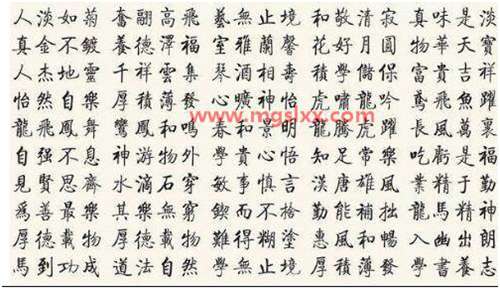 人淡如菊 奮翮高飛 藝無止境 和敬清寂 真味是淡
真金不鍍 養德澤福 室雅蘭馨 花好月圓 物華天寶
人杰地靈 千祥雲集 琴酒相壽 積學儲保 富貴吉祥
怡然自樂 厚積薄發 心曠神怡 虎嘯龍吟 鳶飛魚躍
www.mgslxx.com
龍飛鳳舞 鸞鳳和鳴 春和景明 龍騰虎躍 長風萬裏
自強不息 神游物外 學貴心悟 知足常樂 吃虧是福
見賢思齊 水滴石穿 敏事慎言 漢唐雄風 業精于勤
爲善最樂 其樂無窮 鍥而不捨 勤能補拙 龍馬精神
厚德載物 厚德載物 難得糊塗 惠風和暢 入幽出朗
馬到功成 道法自然 學無止境 厚積薄發 學書養志